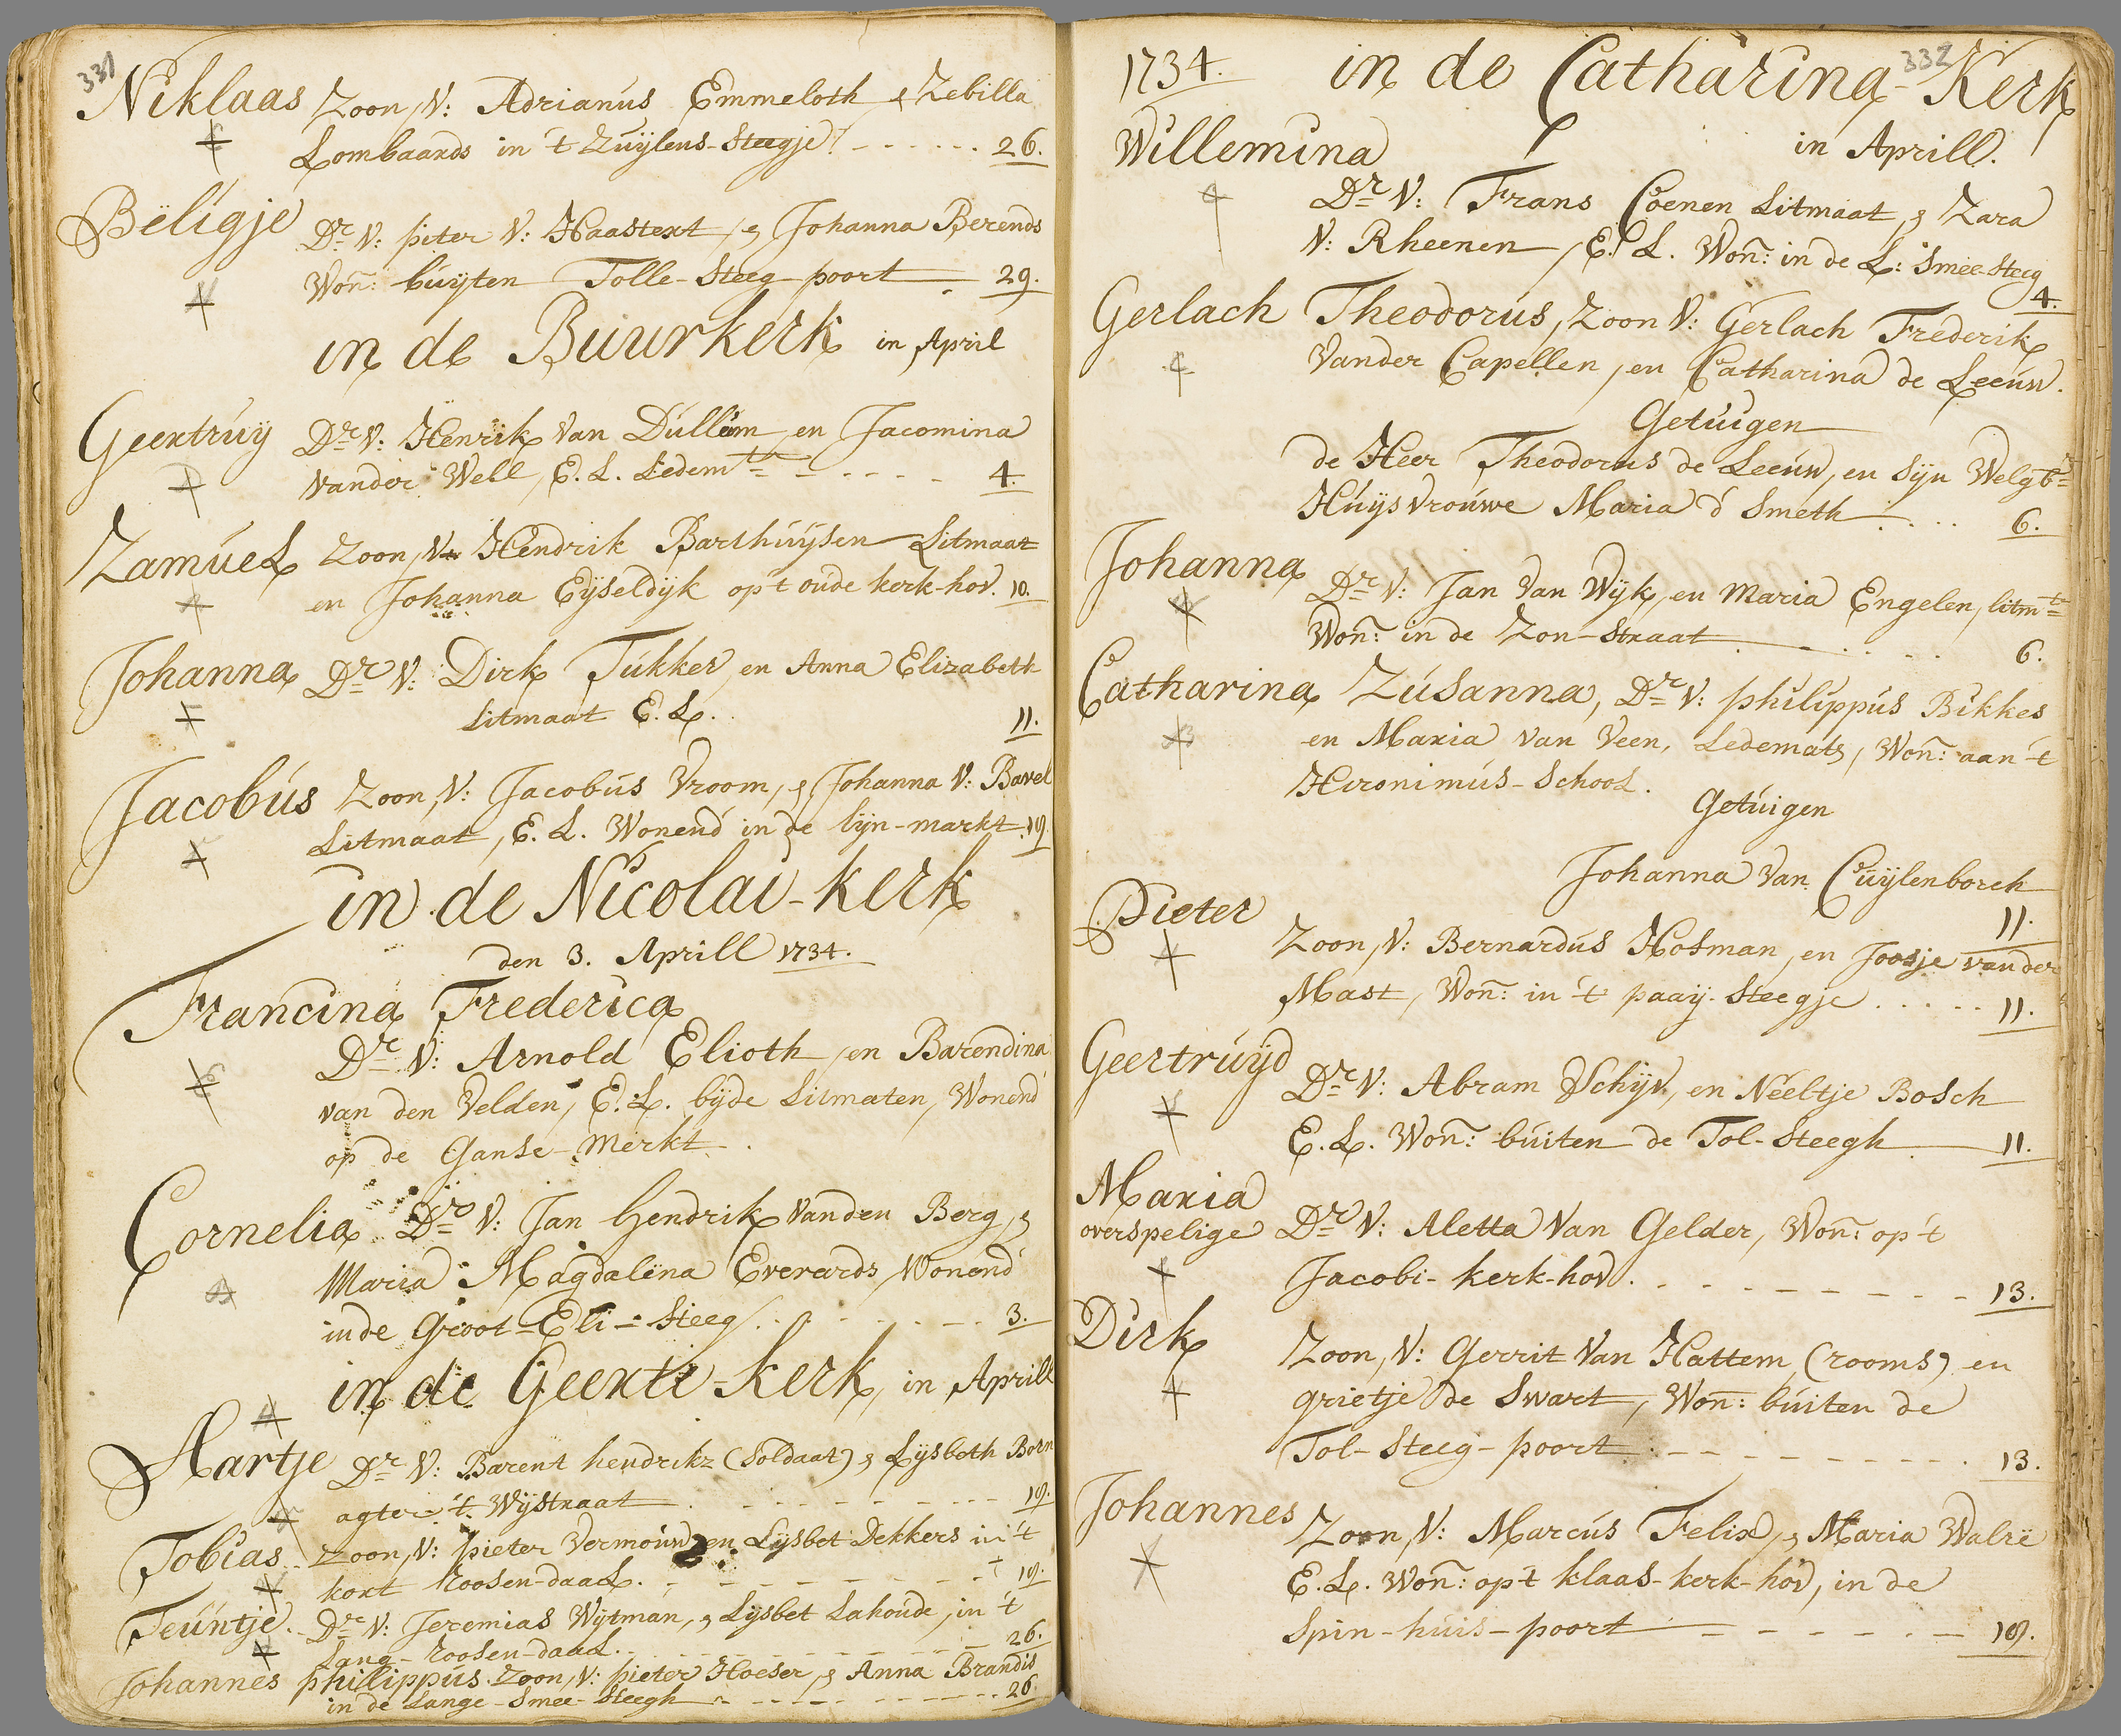 331
Niklaas Zoon, V: Adrianus Emmeloth & Zebilla
Lombaards in 't Zuylens-Steegje. 26.
Beligje Dr V: piter V: Haastert, & Johanna Berends
Won: buyten Tolle-Steeg-poort 29.
in de Buurkerk in April
Geertruy Dr V: Henrik Van Dullem en Jacomina
vander Well, E. L. Ledemtn 4.
Zamuel Zoon, V: Hendrik Barthuysen Litmaat
en Johanna Eyseldyk op 't oude kerk-hov. 10.
Johanna Dr V: Dirk Tukker, en Anna Elizabeth
Litmaat E. L. 11.
Jacobus Zoon, V: Jacobus Vroom, & Johanna V: Bavel
Litmaat, E. L. Wonend in de lijn-markt. 19.
in de Nicolai-kerk
den 3. Aprill 1734.
Francina Frederica
Dr V: Arnold Elioth, en Barendina
van den Velden, E. L. byde Litmaten, Wonend
op de Ganse-Merkt.
Cornelia Dr V: Jan Hendrik vanden Berg, &
Maria Magdalena Everards, Wonend
in de Groot-Eli-Steeg 3.
in de Geerte-Kerk, in Aprill
Aartje Dr V: Barent hendrikz (Soldaat) & Lysbeth Born
agter 't Wystraat 19.
Tobias Zoon, V: pieter Vermouw en Lysbet Dekkers in 't
kort Roosen-daal. 19.
Teuntje Dr V: Jeremias Wytman, & Lysbet Lahoude, in 't
Lang-Roosen-daal. 26.
Johannes phillippus Zoon, V: pieter Hoeser, & Anna Brandis
in de Lange-Smee-Steegh 26.
332
1734. in de Catharina-Kerk
in Aprill.
Willemina
Dr V: Frans Coenen Litmaat, & Zara
V: Rheenen, E. L. Won: in de L: Smee-Steeg
4.
Gerlach Theodorus, Zoon V: Gerlach Frederik
Vander Capellen, en Catharina de Leeuw.
Getuigen
de Heer Theodorus de Leeuw, en Syn Welgb:
Huysvrouwe Maria d' Smeth 6.
Johanna Dr V: Jan Van Wyk, en Maria Engelen, litmt
Won: in de Zon-Straat 6.
Catharina Zusanna, Dr V: philippus Bikkes
en Maria van Veen, Ledemats, Won: aan 't
Hironimus-School.
Getuigen
Johanna Van Cuylenborch
11.
Pieter Zoon, V: Bernardus Hosman, en Joosje vander
Mast, Won: in 't paay-Steegje 11.
Geertruyd Dr V: Abram Schyv, en Neeltje Bosch
E. L. Won: buiten de Tol-Steegh 11.
Maria
overspelige Dr V: Aletta Van Gelder, Won: op 't
Jacobi-kerk-hov. 13.
Dirk Zoon, V: Gerrit Van Hattem (rooms) en
grietje de Swart, Won: buiten de
Tol-Steeg-poort 13.
Johannes Zoon, V: Marcus Felix, & Maria Walre
E. L. Won: op 't klaas-kerk-hov, in de
Spin-huis-poort 19.